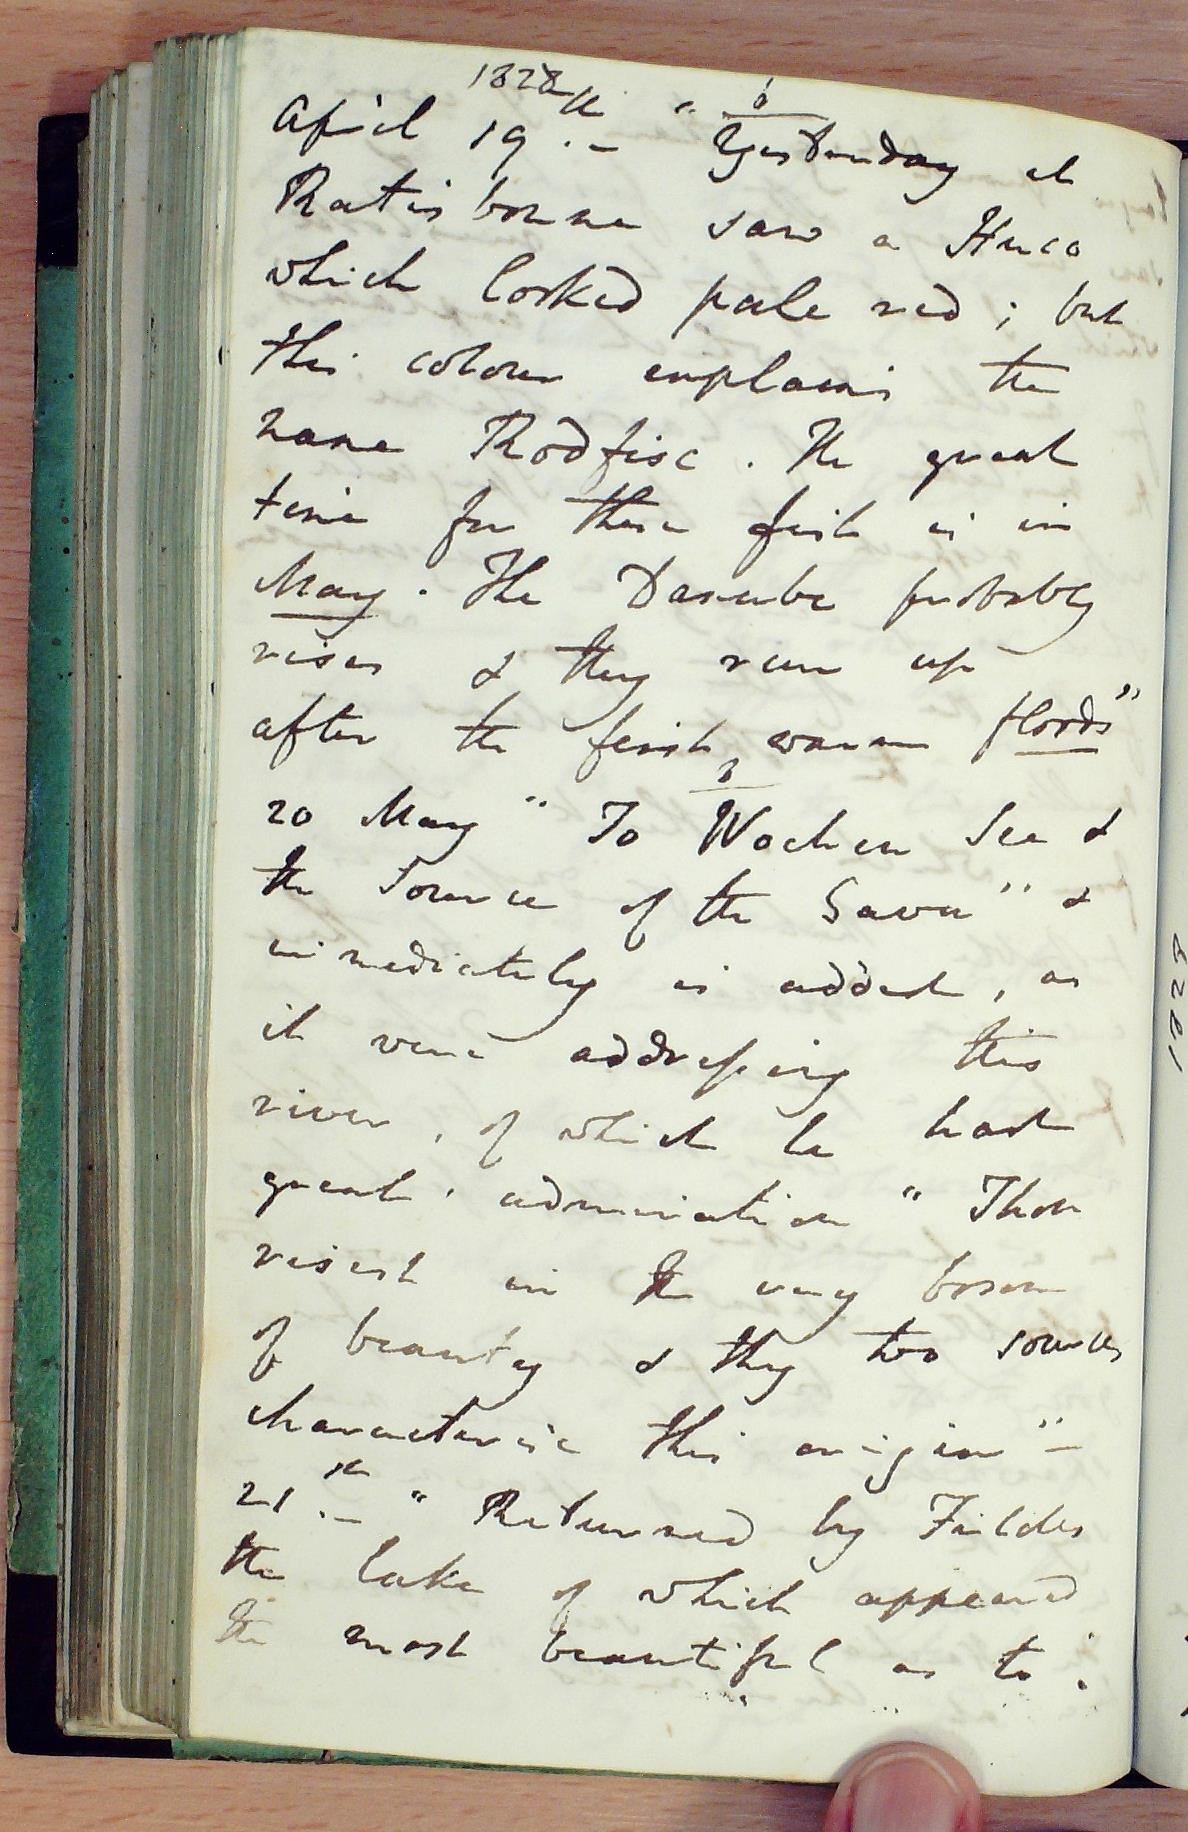 1828
6
April 19th.– "Yesterday at
Ratisbonne saw a Huco
which looked pale red; but
this colour explains the
name Rodfisc. The great
time for these fish is in
May. The Danube probably
rises & they run up
after the first warm floods"
8
20 May "To Wochen See &
the Source of the Sava" &
immediately is added, as
it were addressing this
river, of which he had
great admiration "Thou
risest in the very bosom
of beauty & thy two sources
characterise this origin"–
21st.– "Returned by Feldes
the lake of which appeared
the most beautiful as to
1828